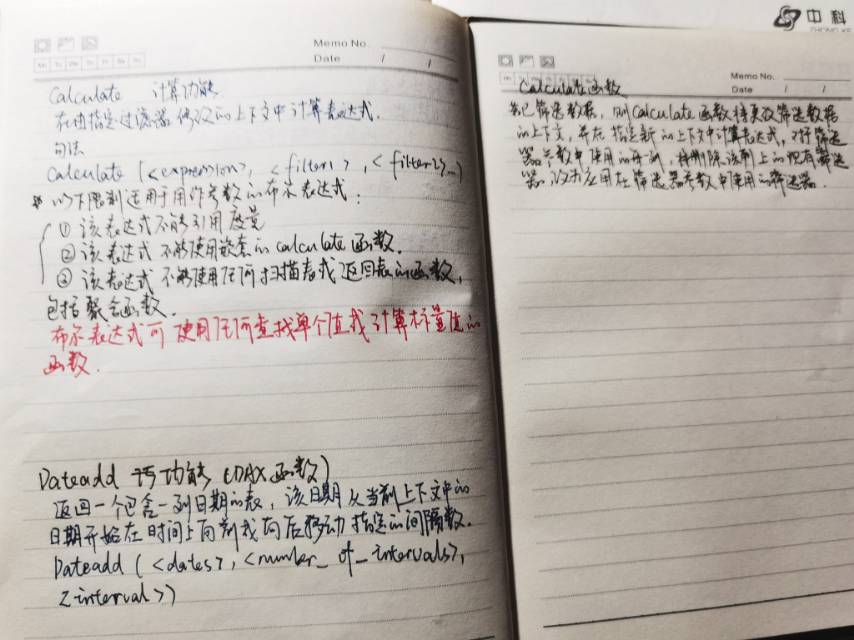 Memo No.
Date / /
Mo Tu We Th Fr Sa Su
Calculate 计算功能
在由指定过滤器修改的上下文中计算表达式.
句法
Calculate (<expression>, <filter1>, <filter2>…)
* 以下限制适用于用作参数的布尔表达式:
① 该表达式不能引用度量
② 该表达式不能使用嵌套的calculate函数.
③ 该表达式不能使用任何扫描表或返回表的函数,
包括聚合函数.
布尔表达式可使用任何查找单个值或计算标量值的
函数.
Dateadd 功能 (DAX函数)
返回一个包含一列日期的表, 该日期从当前上下文中的
日期开始在时间上向前或向后移动指定的间隔数.
Dateadd (<dates>, <number_of_intervals>,
<interval>)
中科
ZHONG KE
Memo No.
Date / /
Calculate函数
若已筛选数据, 则Calculate函数将更改筛选数据
的上下文, 并在指定新的上下文中计算表达式, 对于筛选
器参数中使用的每一列, 将删除该列上的现有筛选
器, 改为应用在筛选器参数中使用的筛选器.